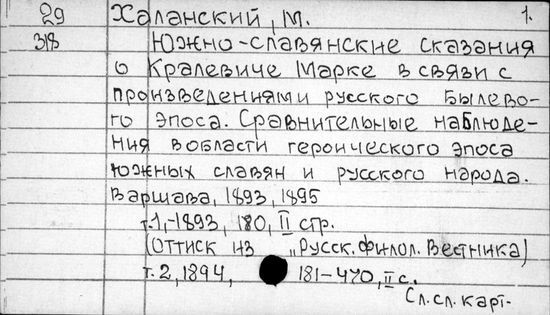 29 Халанский, М. 1.
318 Южно-славянские сказания
о Кралевиче Марке в связи с
произведениями русского былево-
го эпоса. Сравнительные наблюде-
ния в области героического эпоса
южных славян и русского народа.
Варшава, 1893, 1895
т.1,-1893, 180, II стр.
(Оттиск из „Русск. филол. Вестника)
т.2, 1894, 181-470, II с.
Сл. сл. карт.